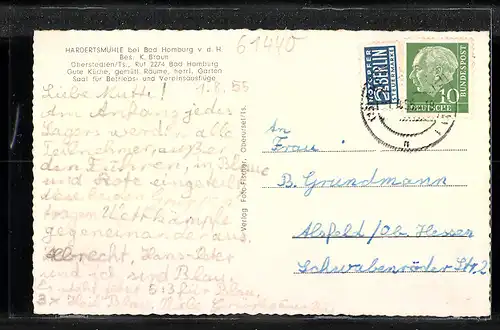 HARDERTSMÜHLE bei Bad Homburg v. d. H.
Bes. K. Braun
Oberstedten/Ts., Ruf 2274 Bad Homburg
Gute Küche, gemütl. Räume, herrl. Garten
Saal für Betriebs- und Vereinsausflüge
61440
1.8.55
Liebe Mutti!
Am Anfang jedes
Lagers werden alle
Teilnehmer, außer
den Führern, in Blaue
und Rote eingeteilt
diese beiden
tragen Wettkämpfe
gegeneinander aus.
Albrecht, Hans-Peter
und ich sind Blau.
Es steht 5:3 für Blau.
3x Heil Blau,
Verlag Foto-Fischer, Oberursel/Ts.
NOTOPFER
2 BERLIN
STEUERMARKE
DEUTSCHE
BUNDESPOST
10
An
Frau
B. Grundmann
Alsfeld/Ob. Hessen
Schwabenröder Str. 2